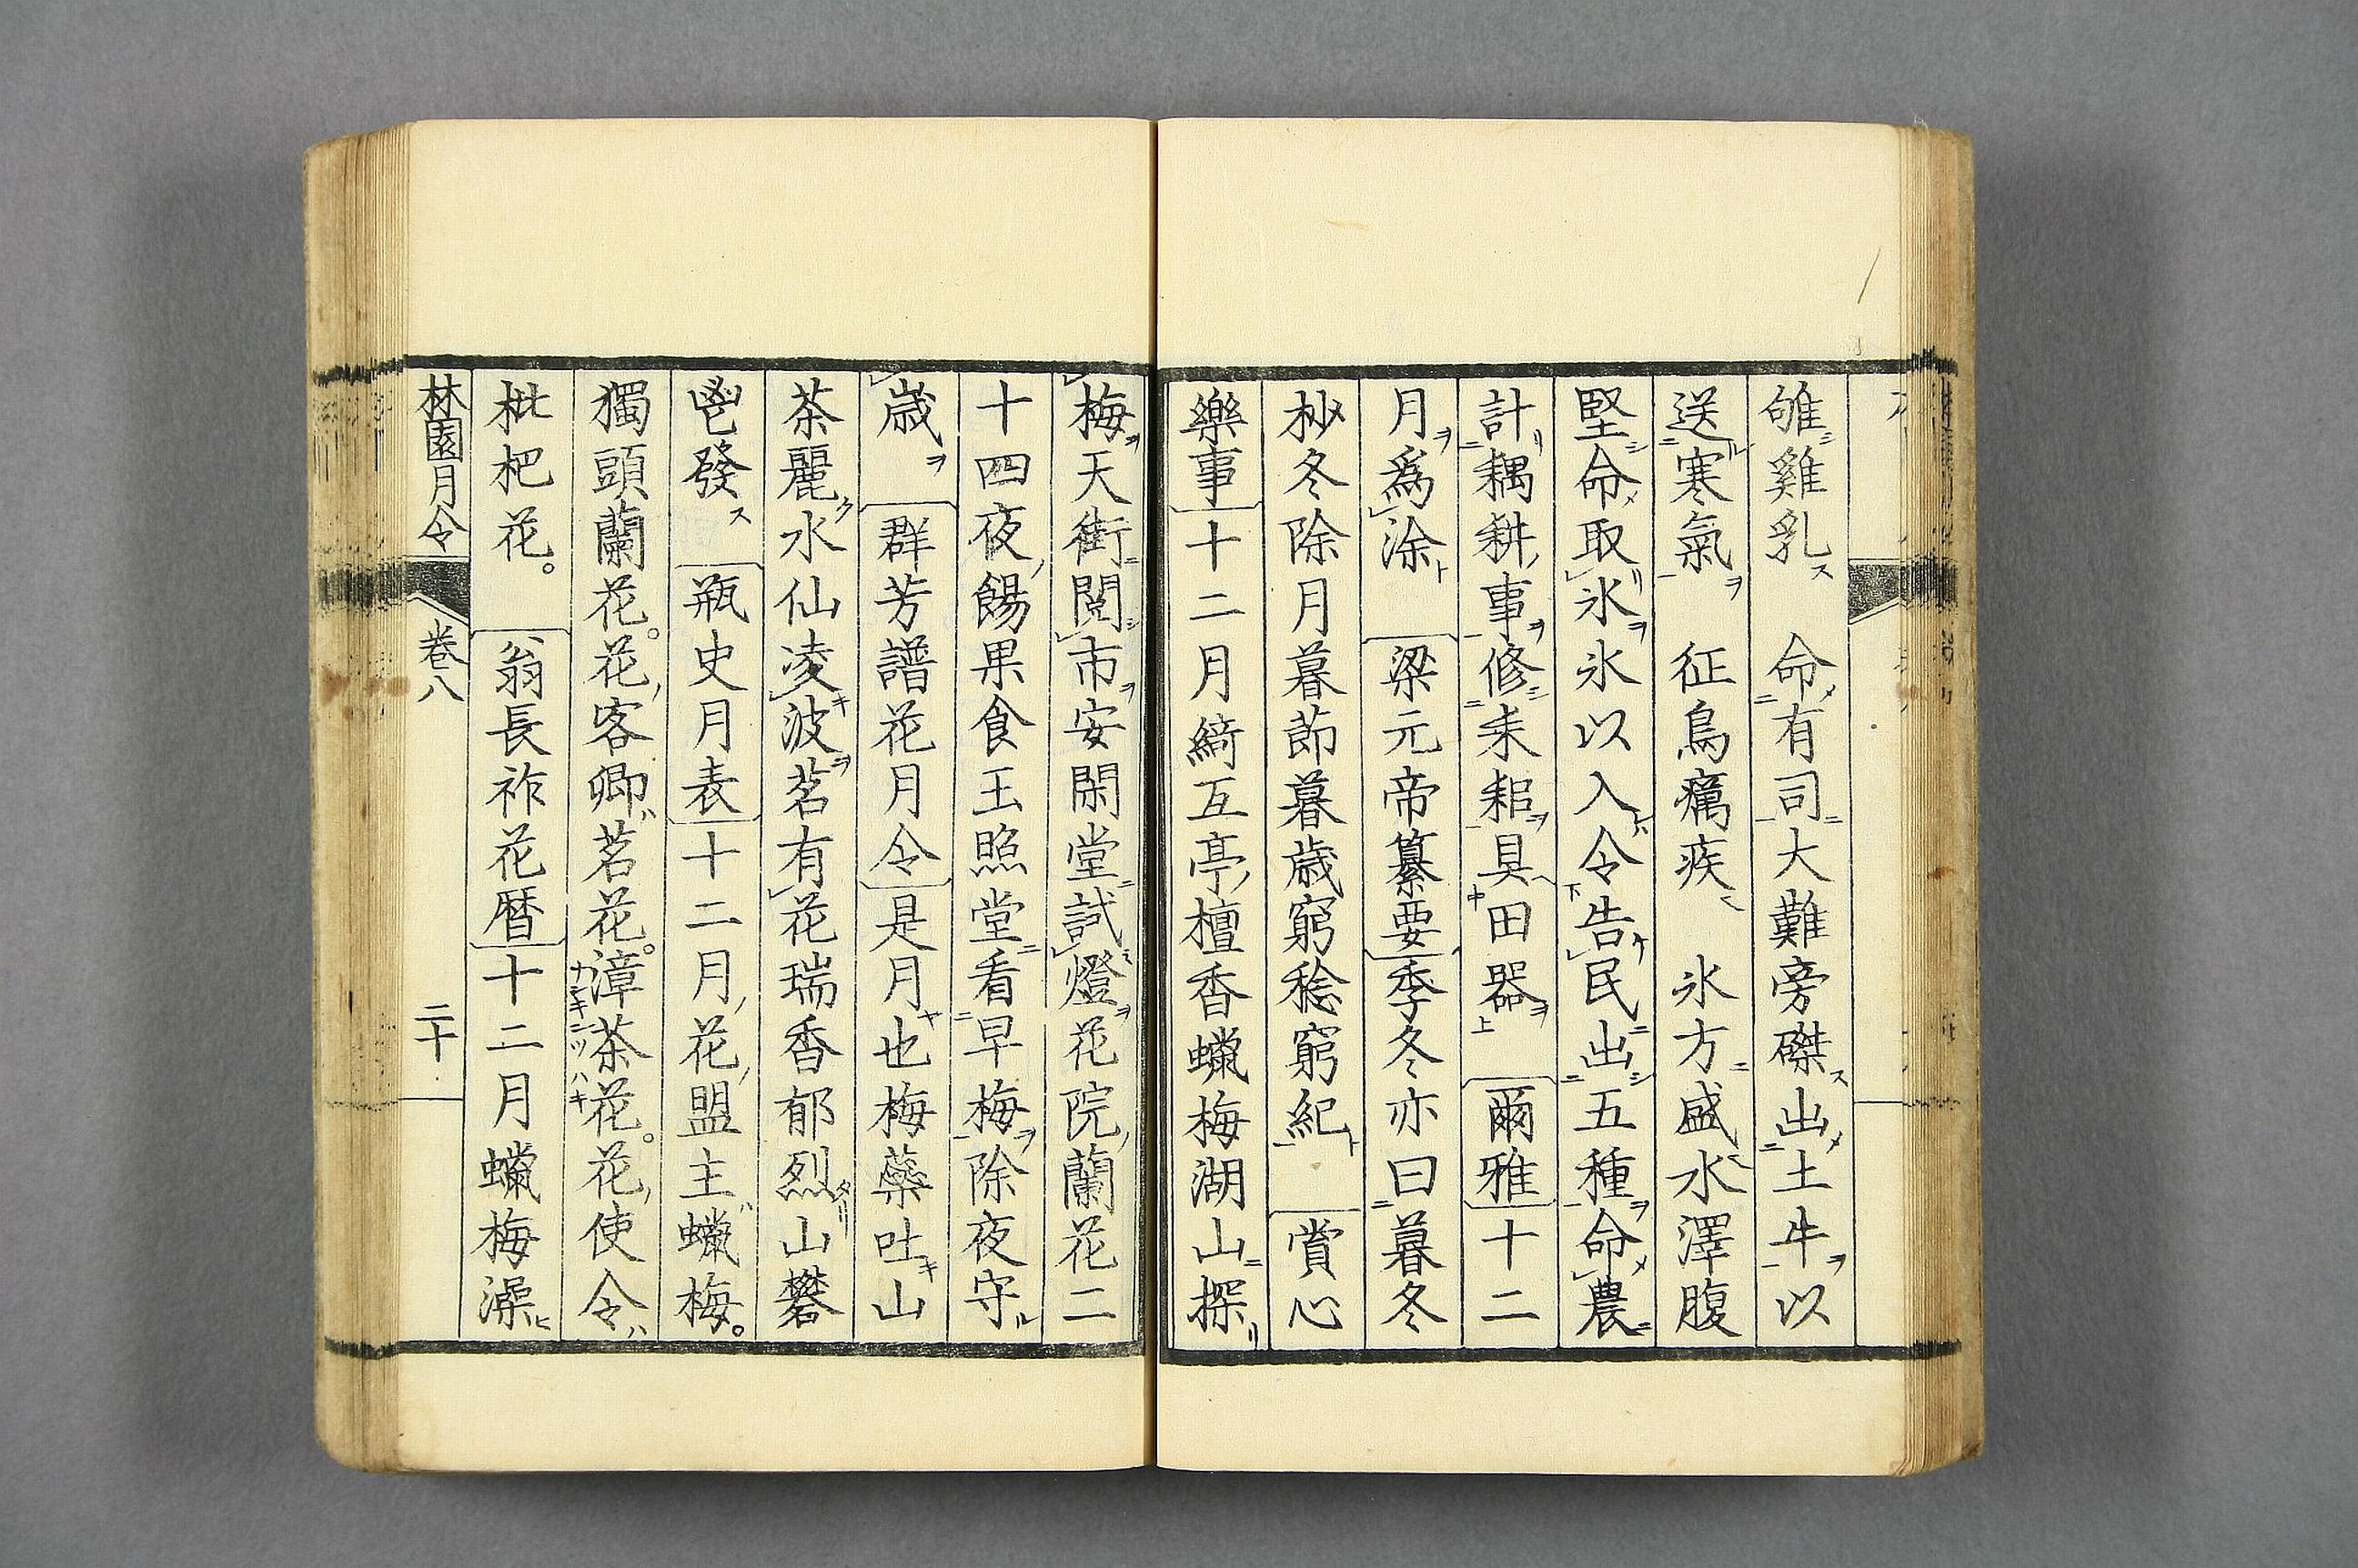 雊雞乳 命有司大難旁磔出土牛以
送寒氣 征鳥癘疾 氷方盛水澤腹
堅命取氷氷以入令告民出五種命農
計耦耕事修耒耜具田器 爾雅十二
月爲涂 梁元帝纂要季冬亦曰暮冬
杪冬除月暮節暮歳窮稔窮紀 賞心
樂事十二月綺互亭檀香蠟梅湖山探
梅天街閲市安閑堂試燈花院蘭花二
十四夜餳果食玉照堂看早梅除夜守
歳 群芳譜花月令是月也梅蘂吐山
茶麗水仙凌波茗有花瑞香郁烈山礬
鬯發 瓶史月表十二月花盟主蠟梅。
獨頭蘭花。花客卿茗花。漳茶花。花使令
枇杷花。 翁長祚花暦十二月蠟梅澡
林園月令 卷八 二十